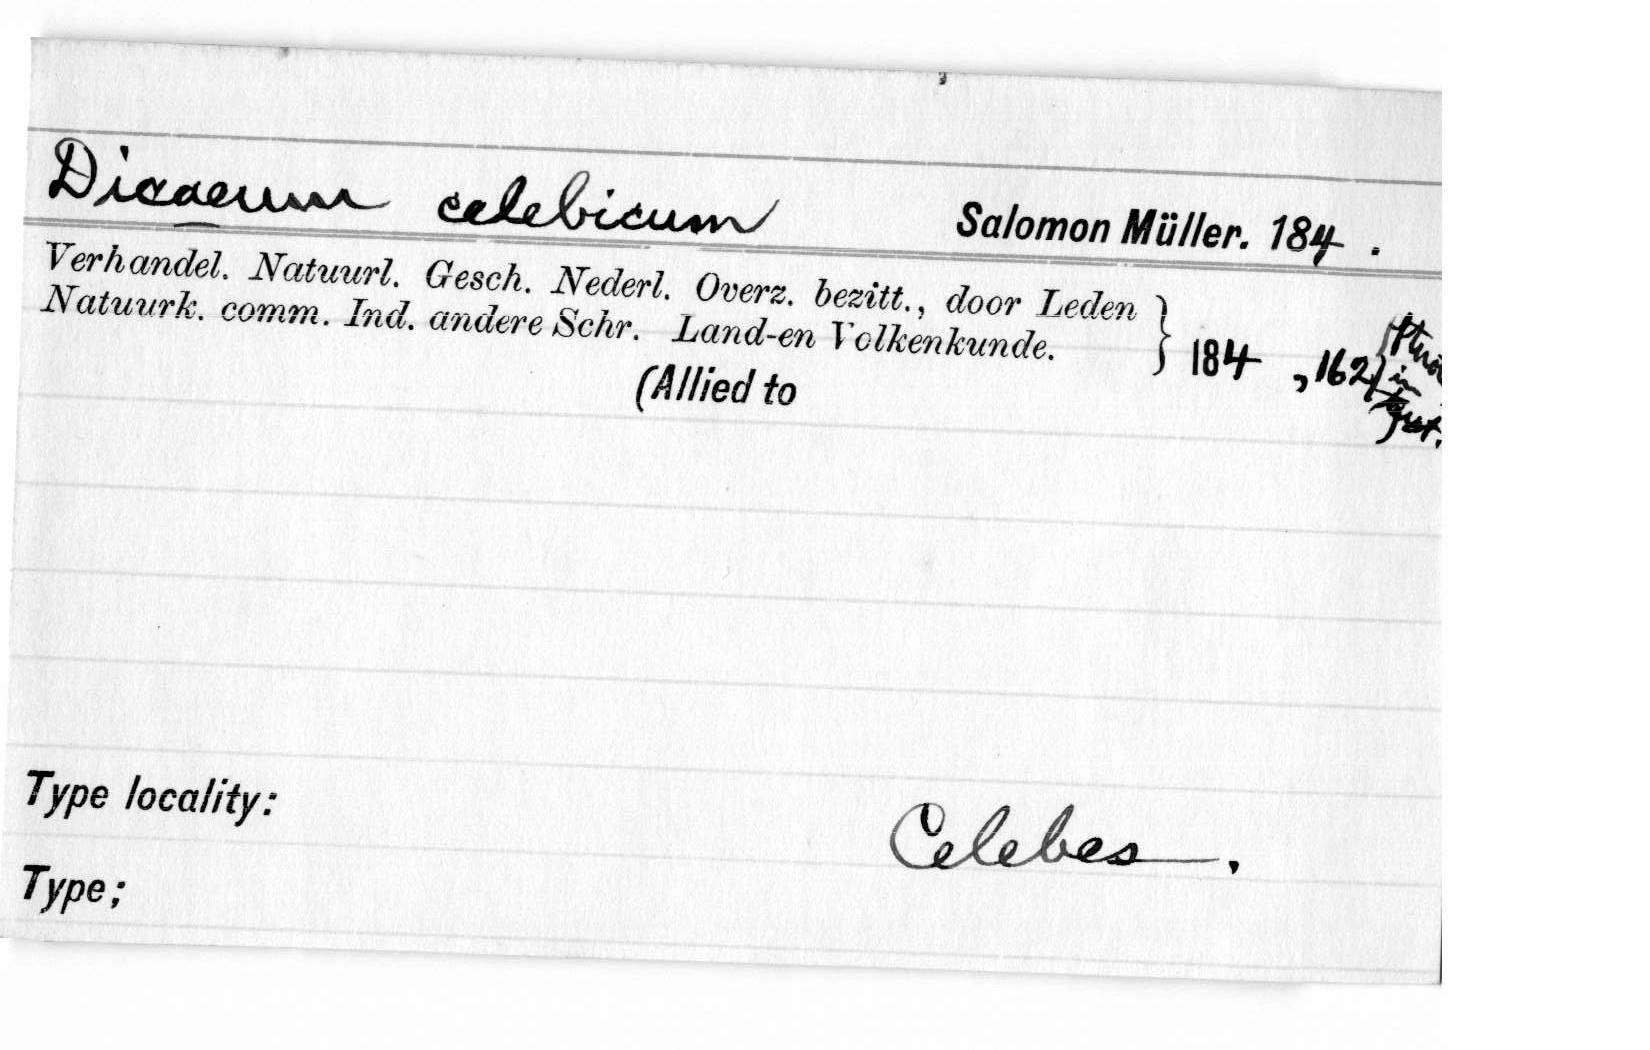 Dicaeum celebicum Salomon Müller. 184 .
Verhandel. Natuurl. Gesch. Nederl. Overz. bezitt., door Leden
Natuurk. comm. Ind. andere Schr. Land-en Volkenkunde. } 184 , 162
in
(Allied to
Type locality: Celebes.
Type;